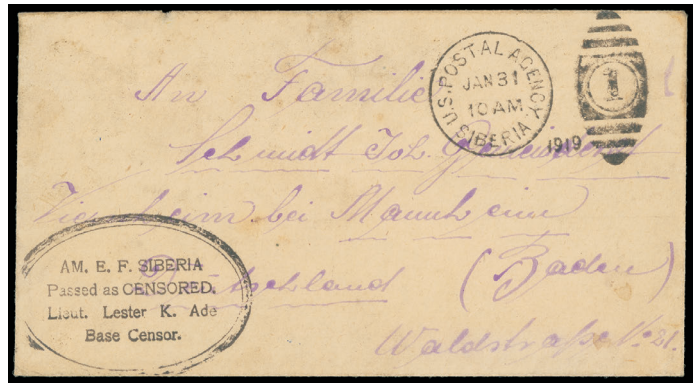 U.S. POSTAL AGENCY.
SIBERIA.
JAN 31
10 AM
1919
1
An Familie
Schmidt Joh.
Viernheim bei Mannheim
Deutschland (Baden)
Waldstraße No. 21.
AM. E. F. SIBERIA
Passed as CENSORED.
Lieut. Lester K. Ade
Base Censor.